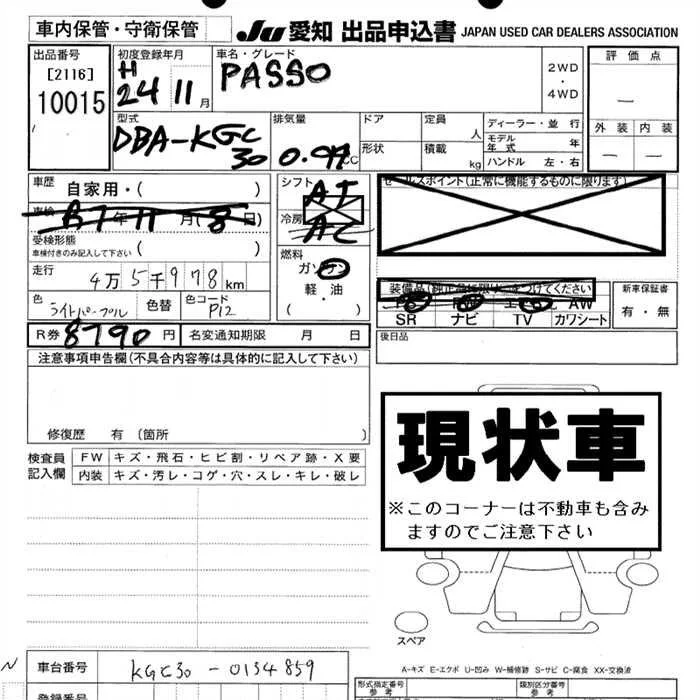 車内保管・守衛保管
JU 愛知 出品申込書 JAPAN USED CAR DEALERS ASSOCIATION
出品番号
[2116]
10015
初度登録年月
H
24 11 月
車名・グレード
PASSO
2WD
・
4WD
評価点
—
外装 内装
— —
型式
DBA-KGC
30
排気量
0.99 CC
ドア
形状
定員
人
積載
kg
ディーラー・並 行
モデル
年 式 年
ハンドル 左・右
車歴
自家用・( )
車検 R7年11月8日)
受検形態
車検付きのみ記入して下さい ( )
走行
4万5千978km
色
ライトパープル
色替
色コード
P12
シフト
AT
冷房
AC
燃料
ガソリン
軽・油
( )
セールスポイント(正常に機能するものに限ります)
装備品(純正品に限り○をつけてください
AW
SR ナビ TV カワシート
新車保証書
有・無
R券 8790 円 名変通知期限 月 日
後日品
注意事項申告欄(不具合内容等は具体的に記入して下さい)
修復歴 有 〔箇所 〕
検査員
記入欄
FW キズ・飛石・ヒビ割・リペア跡・X要
内装 キズ・汚レ・コゲ・穴・スレ・キレ・破レ
現状車
※このコーナーは不動車も含み
ますのでご注意下さい
スペア
A-キズ E-エクボ U-凹み W-補修跡 S-サビ C-腐食 XX-交換済
N
車台番号 KGC30-0134859
登録番号
型式指定番号
参 考
類別区分番号
参 考